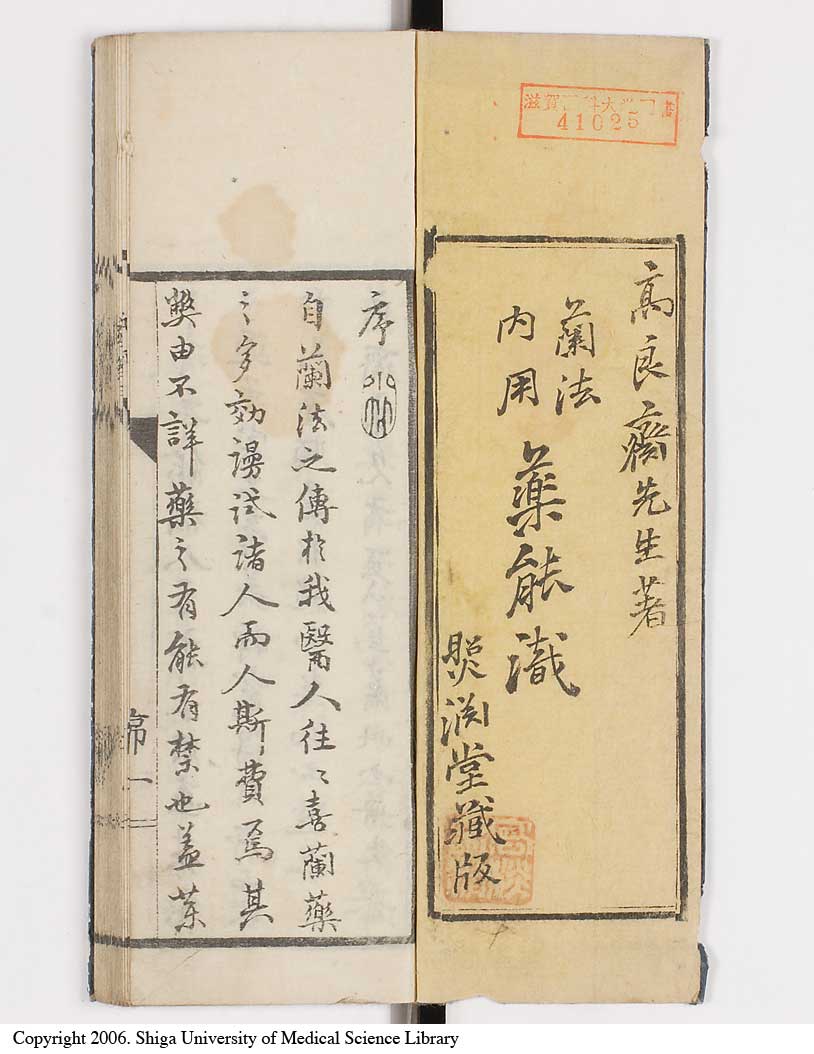 滋賀 科大
41025
高良齋先生著
蘭法
内用
藥能識
渕堂藏版
序
自蘭法之傳於我醫人往〻喜蘭藥
之多効謾試諸人而人斯費焉其
弊由不詳藥之有能有禁也蓋藥
序一
Copyright 2006. Shiga University of Medical Science Library